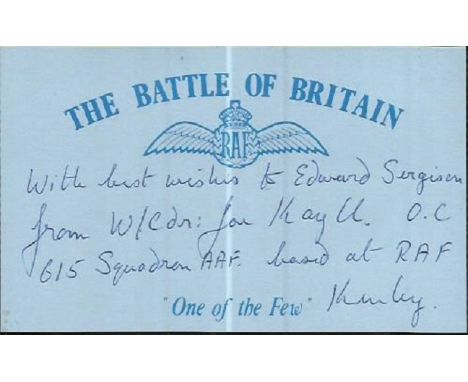 THE BATTLE OF BRITAIN
RAF
With best wishes to Edward Sergison
from W/Cdr: Joe Kayll. O.C
615 Squadron AAF. based at RAF
Kenley.
"One of the Few"